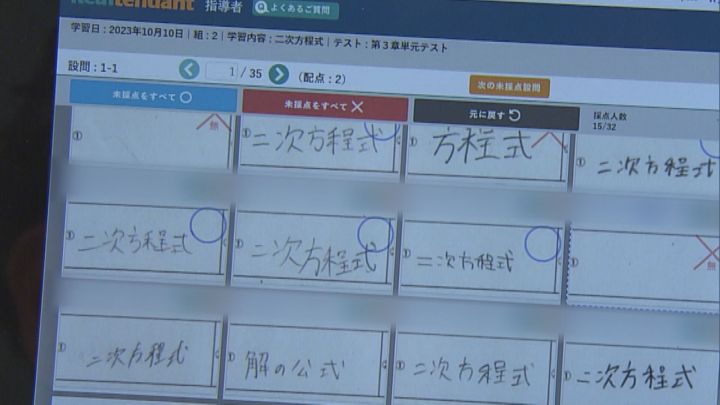 Realtendant 指導者 よくあるご質問
学習日:2023年10月10日|組:2|学習内容:二次方程式|テスト:第3章単元テスト
設問:1-1
1 / 35 (配点:2) 次の未採点設問
未採点をすべて○ 未採点をすべて× 元に戻す 採点人数
15/32
① 無 ① 二次方程式 ① 方程式 ① 二次方程式
① 二次方程式 ① 二次方程式 ① 二次方程式 ① 無
① 二次方程式 ① 解の公式 ① 二次方程式 ① 二次方程式